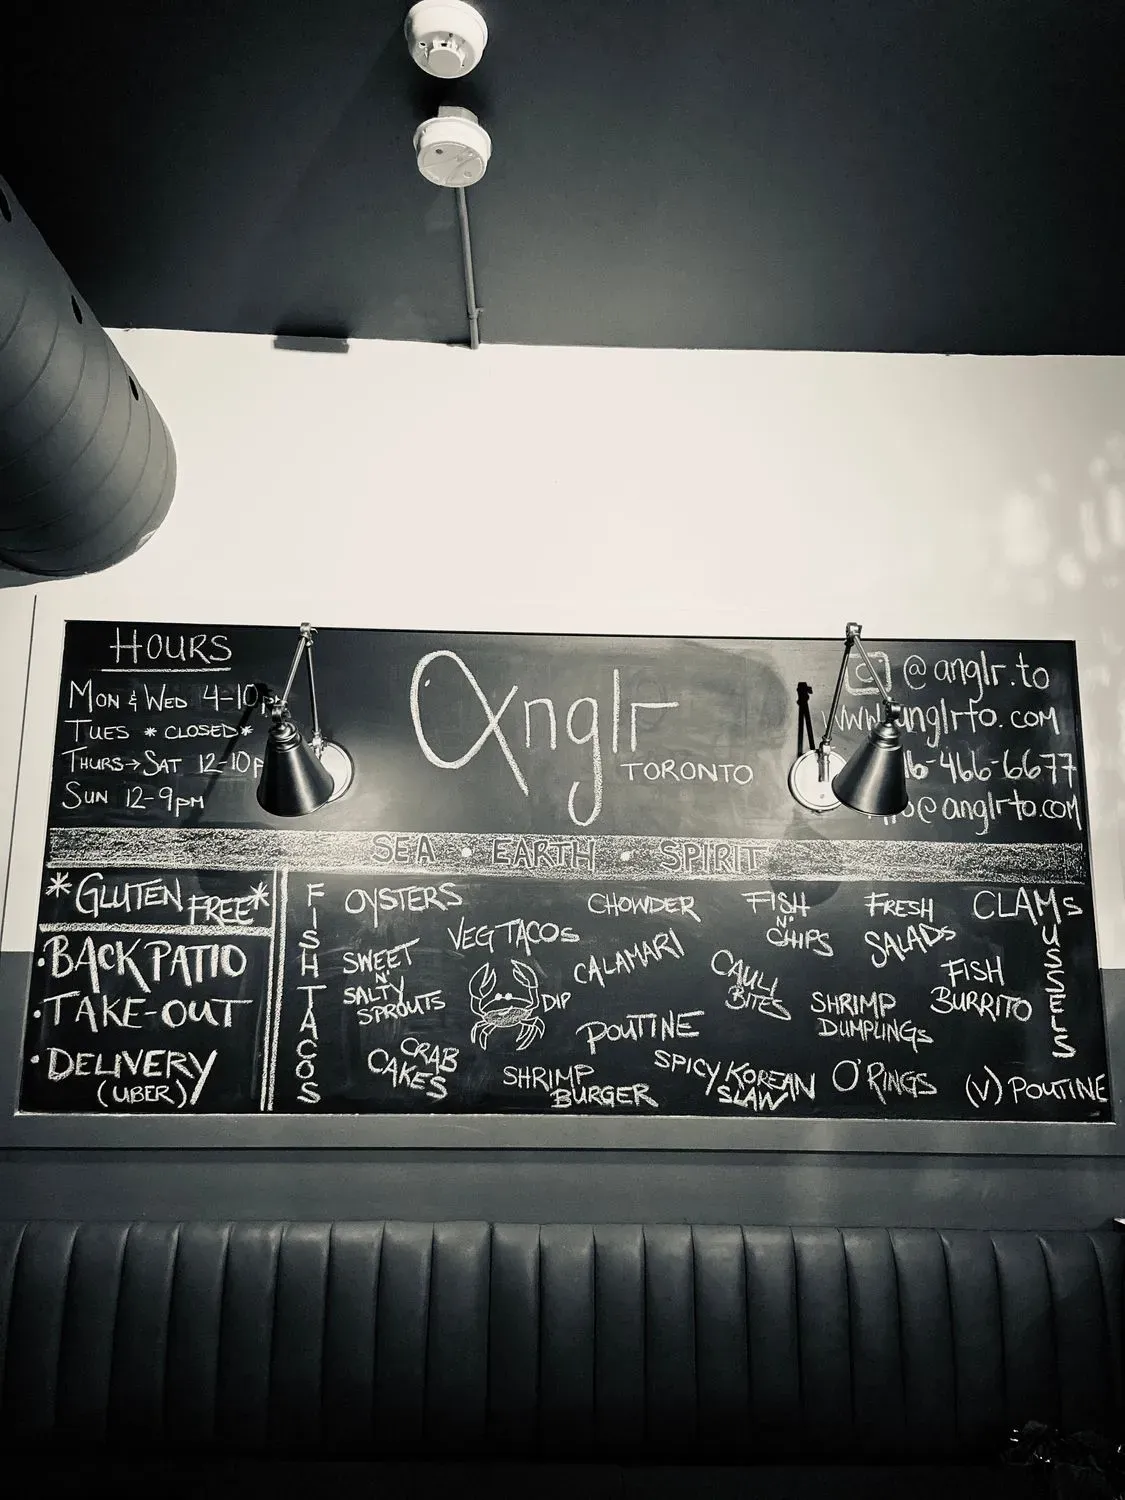 HOURS
MON & WED 4-10PM
TUES * CLOSED *
THURS → SAT 12-10P
SUN 12-9PM
Anglr
TORONTO
@anglr.to
www.anglrto.com
16-466-6677
@anglrto.com
SEA • EARTH • SPIRIT
* GLUTEN FREE *
• BACK PATIO
• TAKE-OUT
• DELIVERY
(UBER)
FISH TACOS
OYSTERS
VEG TACOS
SWEET
N'
SALTY
SPROUTS
DIP
CRAB
CAKES
CHOWDER
CALAMARI
POUTINE
SHRIMP
BURGER
FISH
N'
CHIPS
CAULI
BITES
SPICY KOREAN
SLAW
FRESH
SALADS
SHRIMP
DUMPLINGS
O'RINGS
CLAMS
MUSSELS
FISH
BURRITO
(V) POUTINE